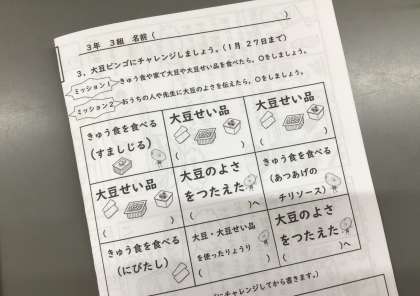 3年 3組 名前( )
3．大豆ビンゴにチャレンジしましょう。（1月 27日まで）
ミッション1 きゅう食や家で大豆や大豆せい品を食べたら、○をしましょう。
ミッション2 おうちの人や先生に大豆のよさを伝えたら、○をしましょう。
きゅう食を食べる
（すましじる）
大豆せい品
( )
大豆せい品
( )
大豆せい品
( )
大豆のよさ
をつたえた
( )へ
きゅう食を食べる
（あつあげの
チリソース）
きゅう食を食べる
（にびたし）
大豆・大豆せい品
を使ったりょうり
( )
大豆のよさ
をつたえた
( )へ
にチャレンジしてから書きます。）